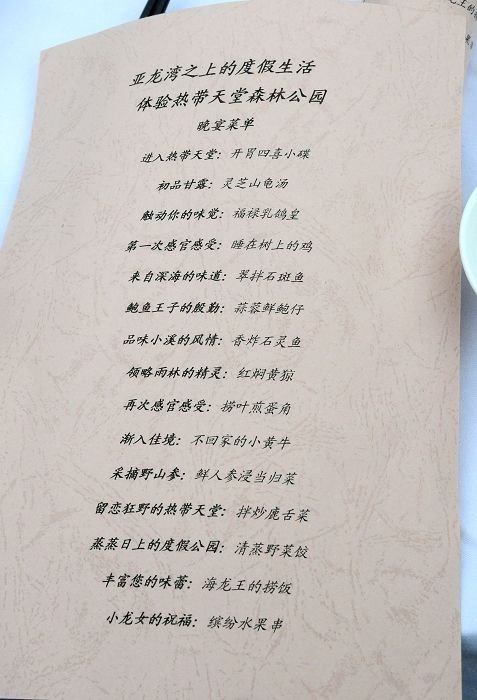 亚龙湾之上的度假生活
体验热带天堂森林公园
晚宴菜单
进入热带天堂：开胃四喜小碟
初品甘露：灵芝山龟汤
触动你的味觉：福禄乳鸽皇
第一次感官感受：睡在树上的鸡
来自深海的味道：翠拌石斑鱼
鲍鱼王子的殷勤：蒜蓉鲜鲍仔
品味小溪的风情：香炸石灵鱼
领略雨林的精灵：红焖黄猄
再次感官感受：捞叶煎蛋角
渐入佳境：不回家的小黄牛
采摘野山参：鲜人参浸当归菜
留恋狂野的热带天堂：拌炒鹿舌菜
蒸蒸日上的度假公园：清蒸野菜饺
丰富您的味蕾：海龙王的捞饭
小龙女的祝福：缤纷水果串